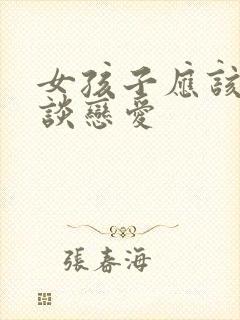 女孩子應該
談戀愛
張春海